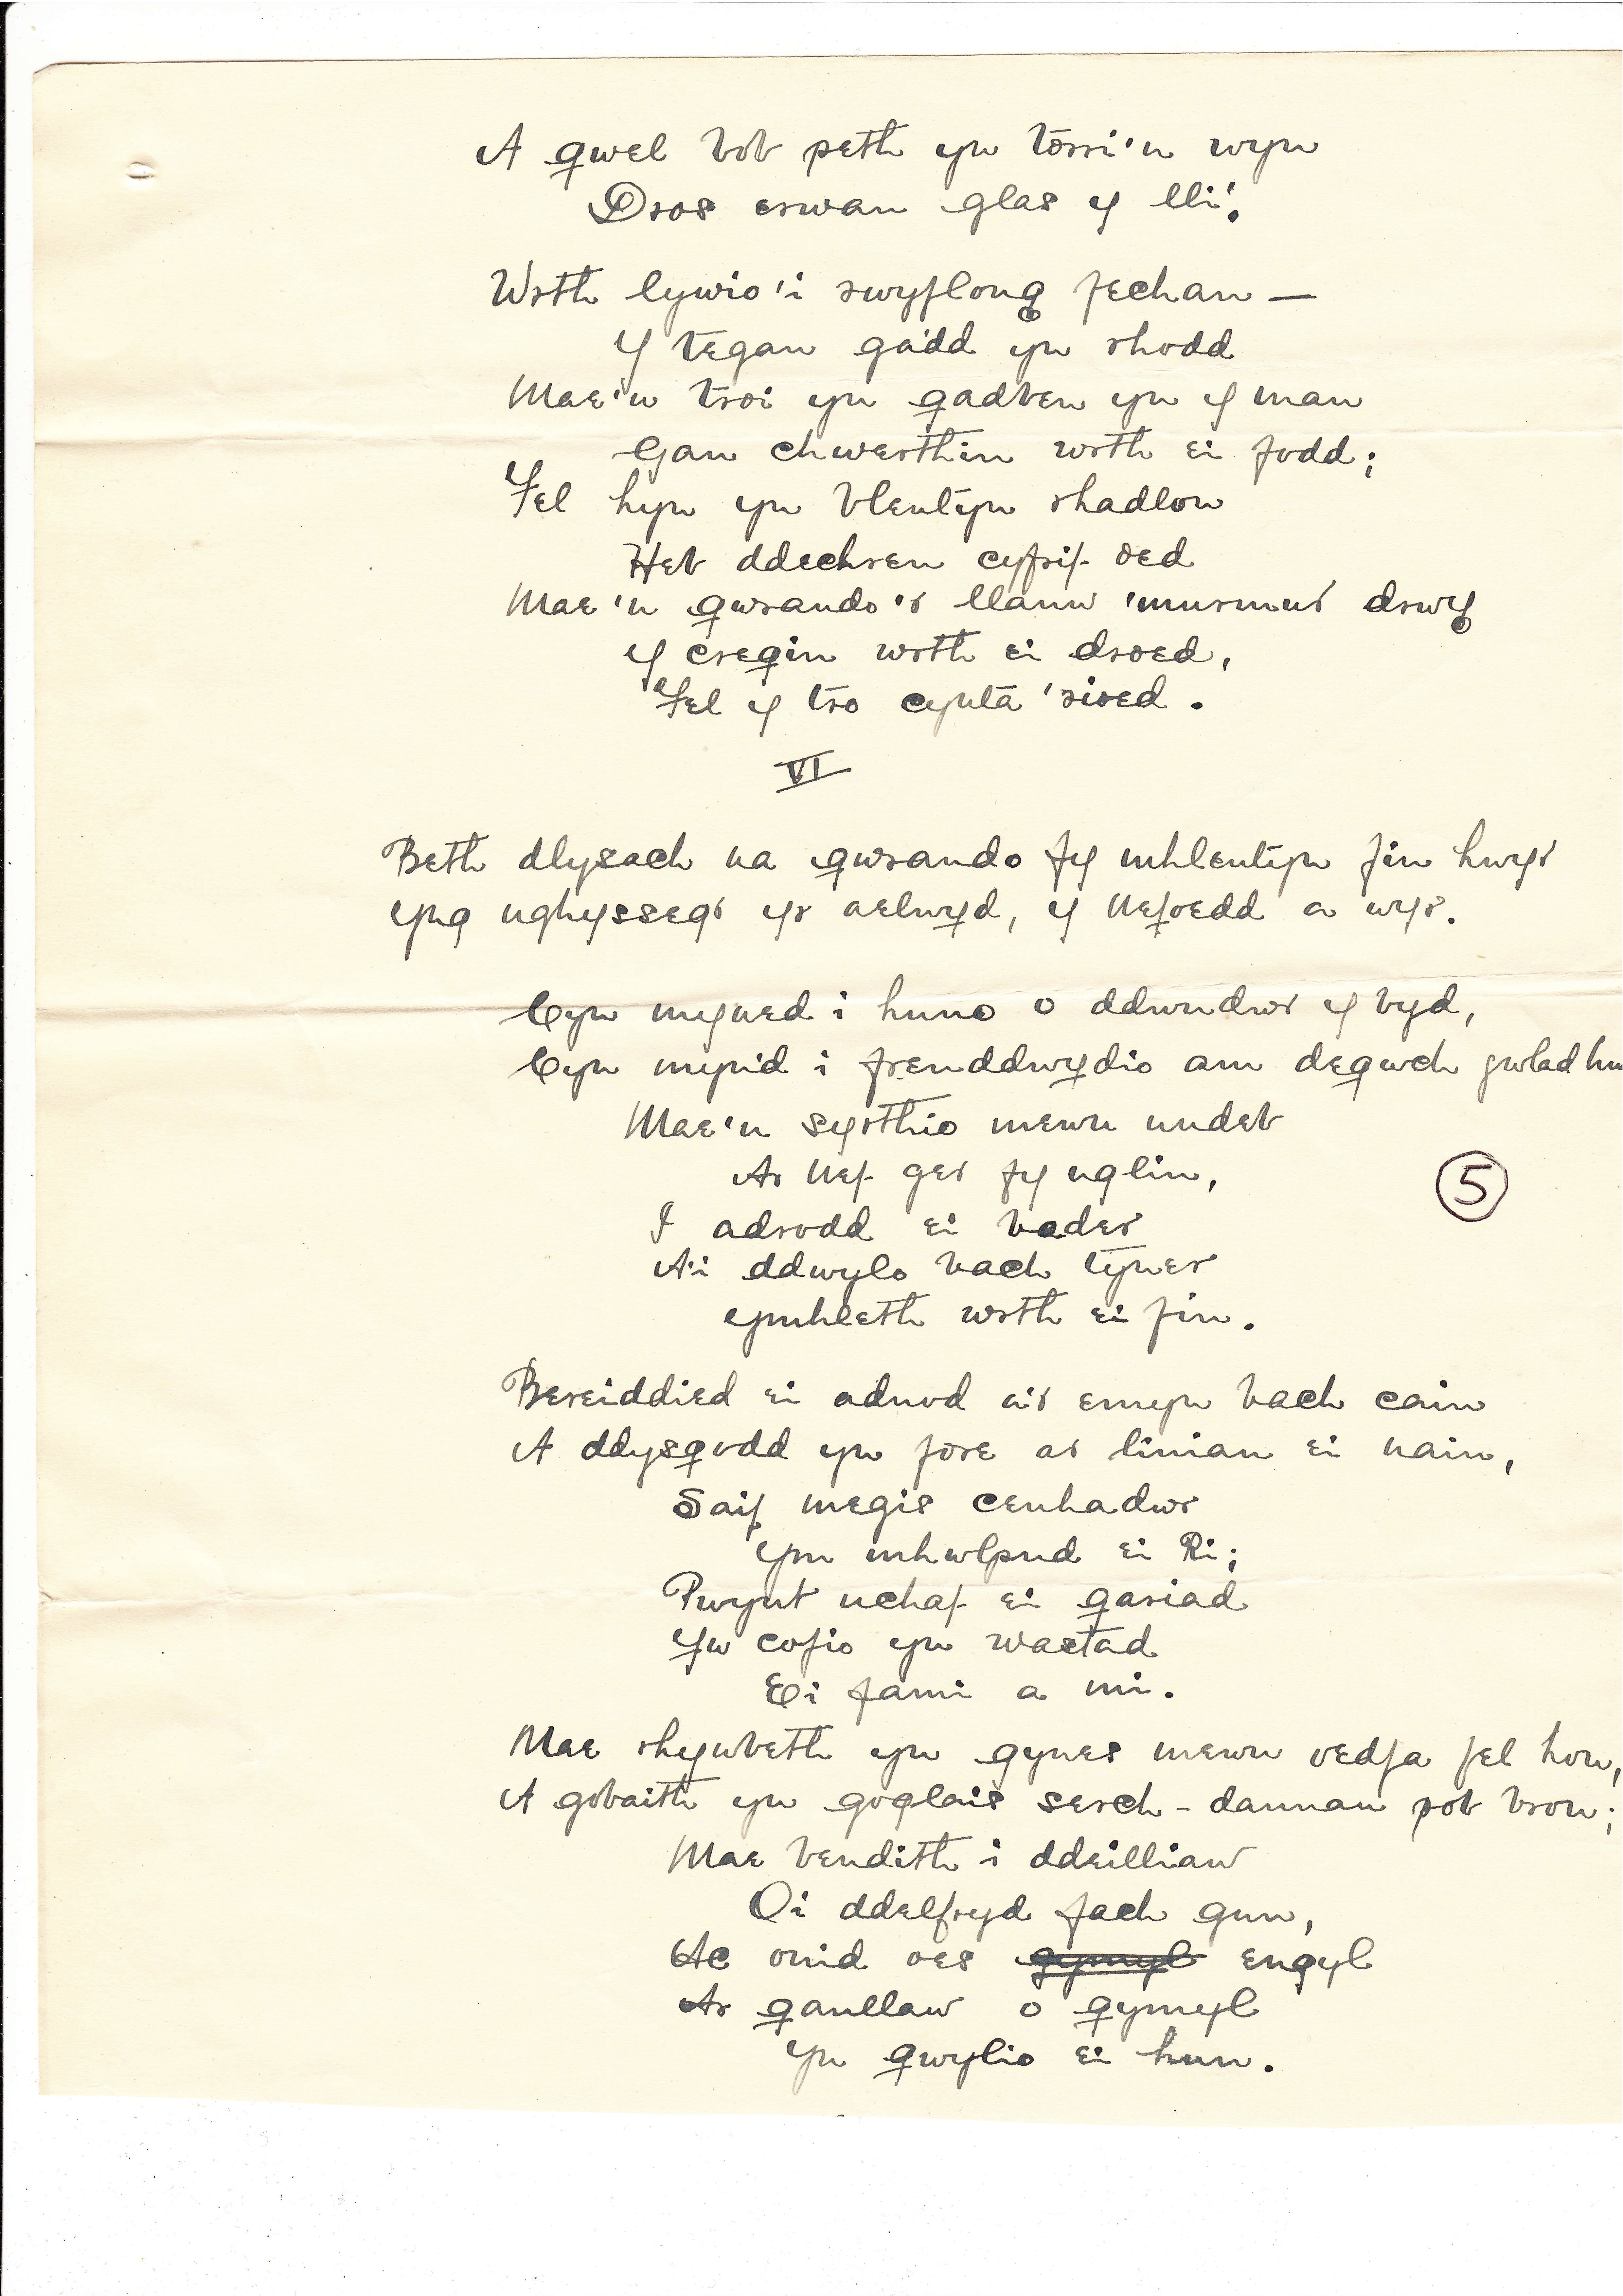 A gwel bob peth yn torri'n wyn
Dros erwau glas y lli'.
Wrth lywio'i rwyflong fechan —
Y tegan gadd yn rhodd
Mae'n troi yn gadben yn y man
Gan chwerthin wrth ei fodd;
Fel hyn yn blentyn rhadlon
Heb ddechreu cyfrif oed
Mae'n gwrando'r llanw 'murmur drwy
Y cregin wrth ei droed,
Fel y tro cynta 'rioed.
VI
Beth dlysach na gwrando fy mhlentyn fin hwyr
Yng nghyssegr yr aelwyd, y Nefoedd a wyr.
Cyn myned i huno o ddwndwr y byd,
Cyn mynd i freuddwydio am degwch gwlad
Mae'n syrthio mewn undeb
Ar Nef ger fy nglin,
I adrodd ei bader
A'i ddwylo bach tyner
Ymhleth wrth ei fin.
Bereiddied ei adnod a'r emyn bach cain
A ddysgodd yn fore ar liniau ei nain,
Saif megis cenhadwr
Ym mhwlpud ei Ri;
Pwynt uchaf ei gariad
Yw cofio yn wastad
Ei fami a mi.
Mae rhywbeth yn gynes mewn oedfa fel hon,
A gobaith yn goglais serch-dannau pob bron;
Mae bendith i ddeilliaw
O'i ddelfryd fach gun,
Ac onid oes gymyl engyl
Ar ganllaw o gymyl
Yn gwylio ei hun.
5